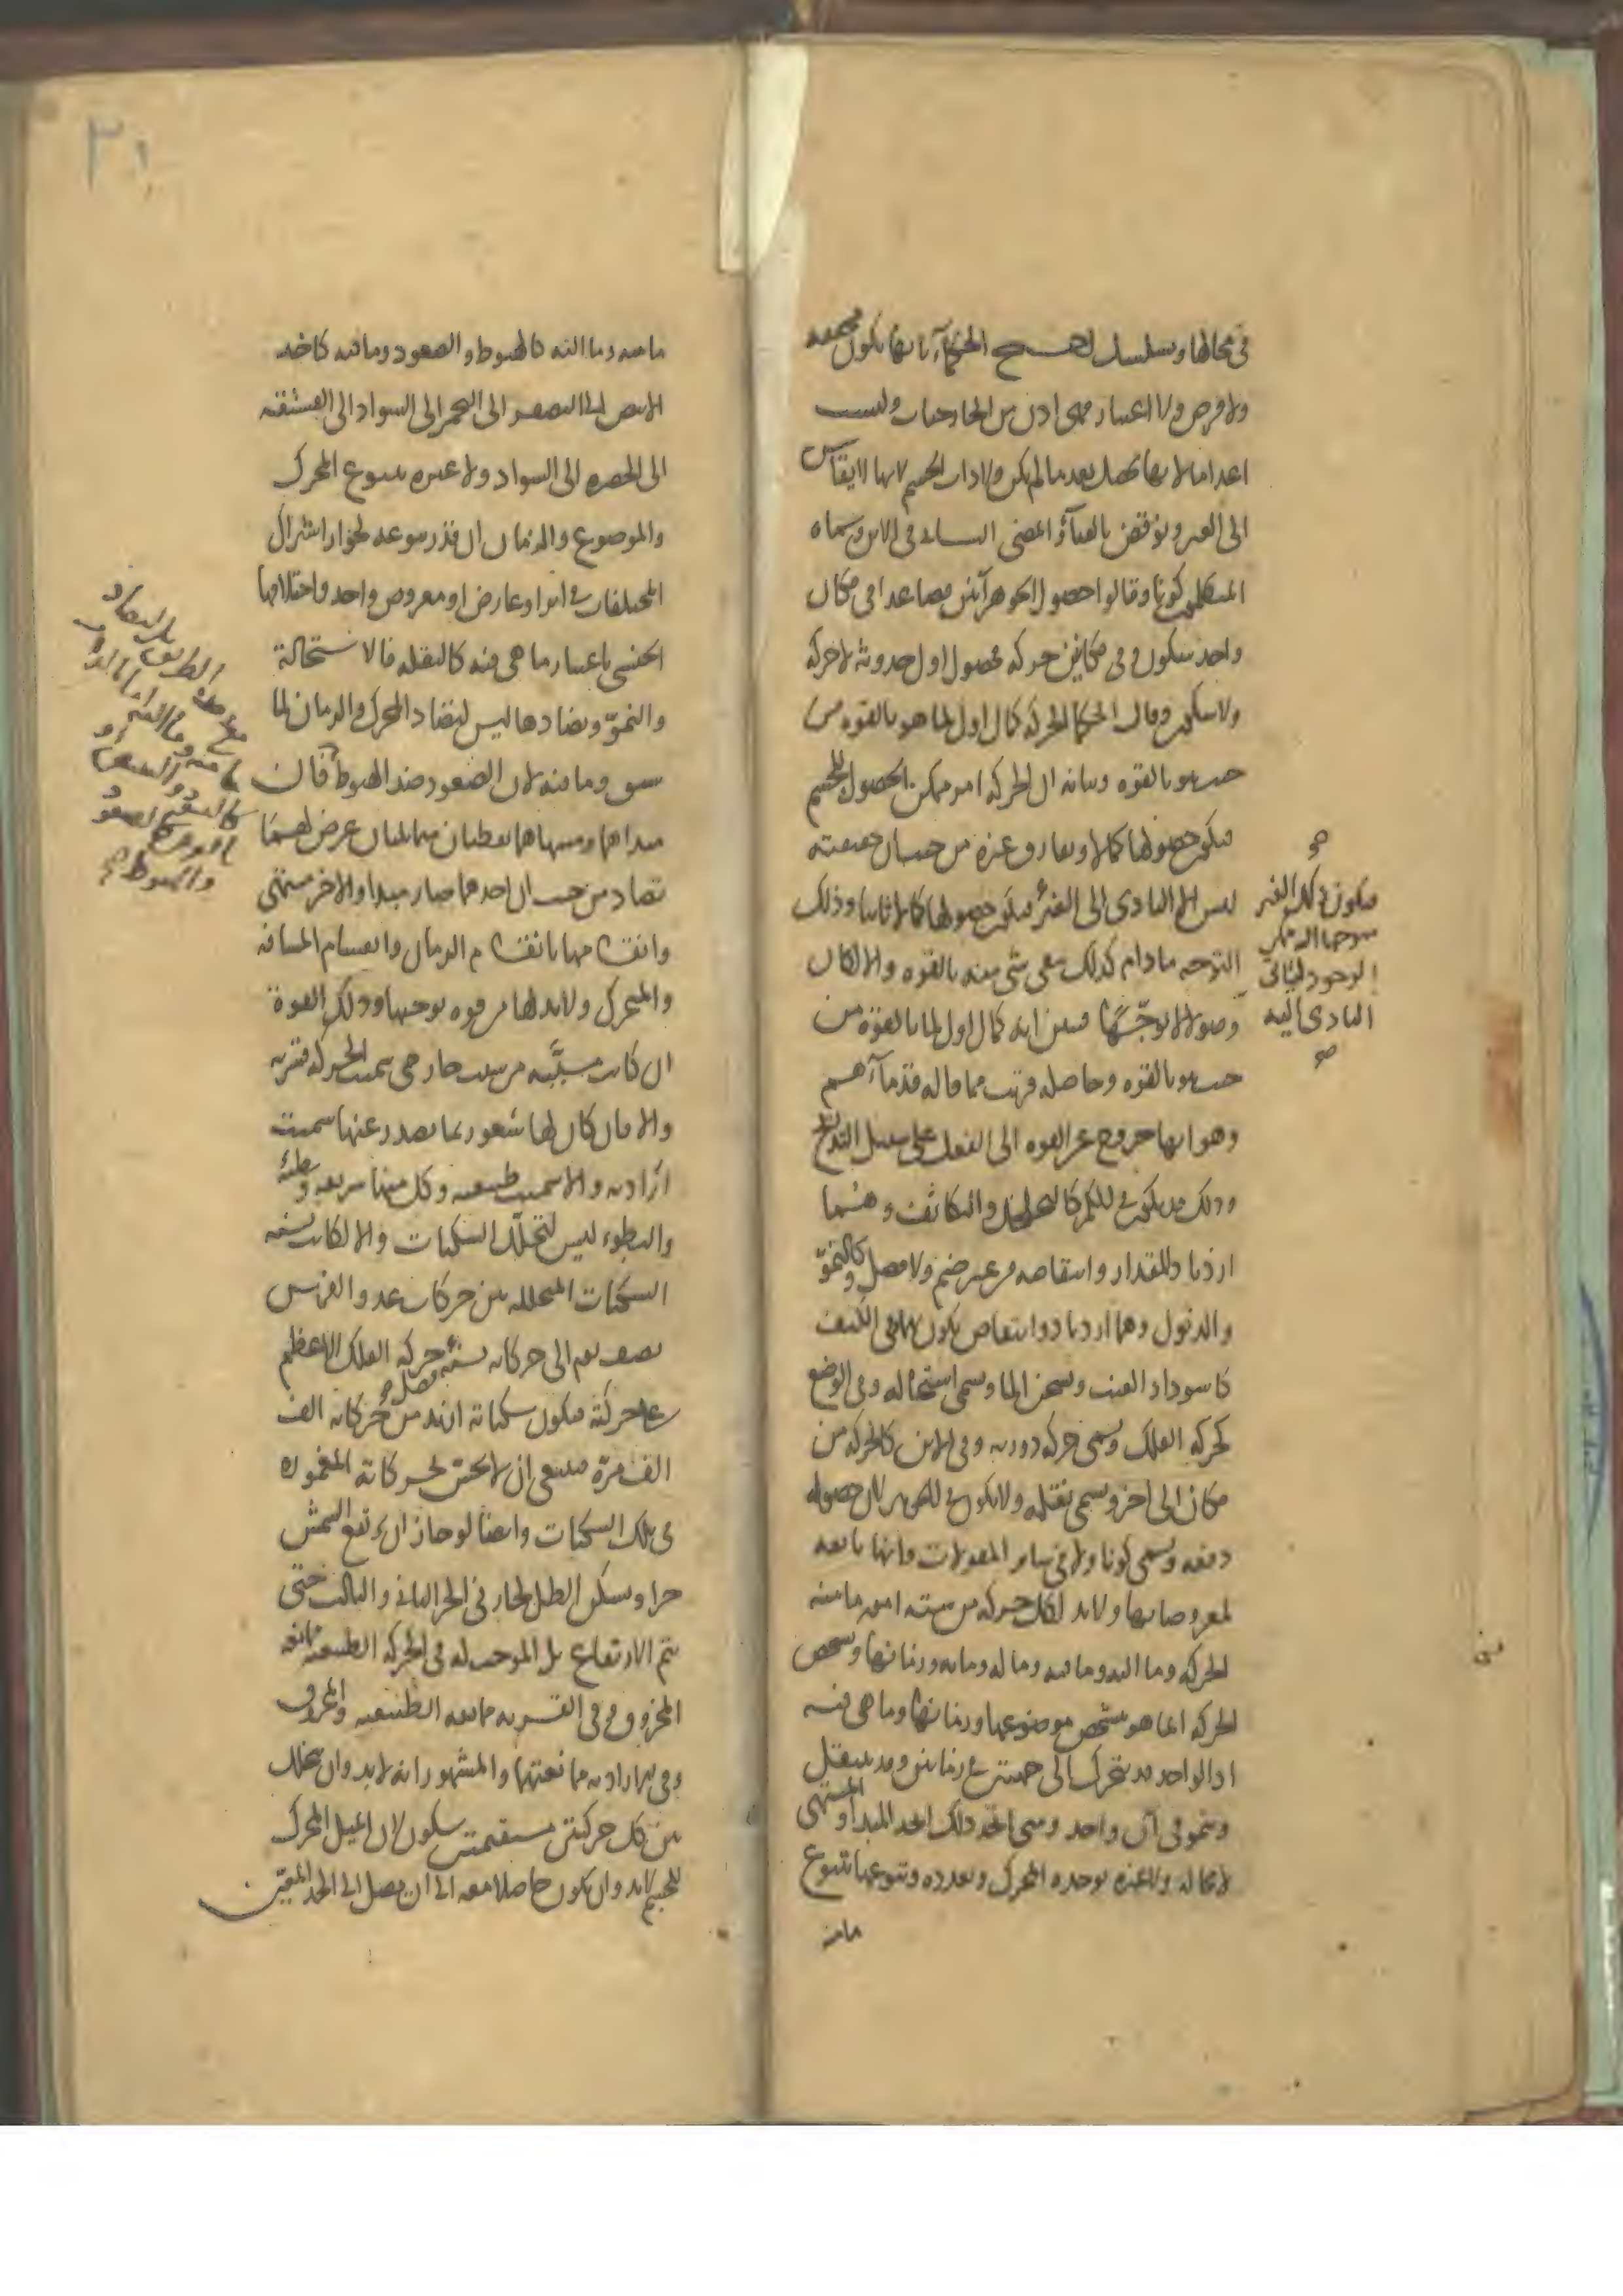 في محالها ويتسلسل احتج الحكماء بانها تكون محققه
ولا فرض ولا اعتبار فهي اذن من الخارجيات وليست
اعداما لانها تحصل بعد ما لم يكن ولا ذات الجسم لانها لا يقاس
الى الغير ونوقض بالفناء والمضي الثالث في الاين وسماه
المتكلمون كونا وقالوا حصول الجوهر آنين فصاعدا في مكان
واحد سكون وفي مكانين حركه فحصول اول حدوثه لا حركه
ولا سكون وقال الحكما الحركه كمال اول لما هو بالقوه من
حيث هو بالقوه وبيانه ان الحركه امر ممكن الحصول للجسم
فيكون حصولها كمالا ويفارق غيره من حيث ان حقيقته
ليس الا التادي الى الغير فيكون حصولها كمالا ثانيا وذلك
التوجه ما دام كذلك بقي شي منه بالقوه والا لكان
وصولا لا توجها فبين انه كمال اول لما بالقوه من
حيث هو بالقوه وحاصله قريب مما قاله قدماءهم
وهو انها خروج عن القوه الى الفعل على سبيل التدريج
وذلك قد يكون في الكم كالتخلخل والتكاثف وهما
ازدياد المقدار وانتقاصه من غير ضم ولا فصل وكالنمو
والذبول وهما ازدياد وانتقاص يكون بهما وفي الكيف
كاسوداد العنب وتسخن الما وتسمى استحاله وفي الوضع
كحركه الفلك وتسمى حركه دوريه وفي الاين كالحركه من
مكان الى اخر وتسمى نقله ولا يكون في الجوهر لان حصوله
دفعه ويسمى كونا ولا في سائر المقولات فانها تابعه
لمعروضاتها ولابد لكل حركه من سته امور ما منه
الحركه وما اليه وما فيه وما له وما به وزمانها وتشخص
الحركه انما هو بتشخص موضوعها وزمانها وما هي فيه
اذ الواحد قد يتحرك الى جهتين في زمانين وقد ينتقل
وينمو في آن واحد ومتى اتحد ذلك اتحد المبدأ والمنتهى
لا محاله ولا عبره بوحده المحرك وتعدده وتنوعها بتنوع
ما منه
فيكون ذلك الغير
متوجها اليه ممكن
الوجود ليتاتى
التادي اليه
صح
ما منه وما اليه كالهبوط والصعود وما فيه كاخذ
الابيض الى التصفر الى التحمر الى السواد الى الفستقيه
الى الخضره الى السواد ولا عبره بتنوع المحرك
والموضوع والزمان ان قدر تنوعه لجواز اشتراك
المختلفات في اثر او عارض او معروض واحد واختلافها
الجنسي باعتبار ما هي فيه كالنقله والاستحالة
والنمو وتضادها ليس لتضاد المحرك والزمان لما
سبق وما فيه لان الصعود ضد الهبوط فان
مبداهما ومنتهاهما نقطتان متماثلتان عرض لهما
تضاد من حيث ان احدهما صار مبدا والاخر منتهى
وانقسامها بانقسام الزمان وانقسام المسافه
والمتحرك ولابد لها من قوه توجبها وذلك القوة
ان كانت مسببه من سبب خارجي سميت الحركه قسريه
والا فان كان لها شعور بما يصدر عنها سميت
اراديه والا سميت طبيعيه وكل منها سريعه وبطيئه
والبطوء ليس لتخلل السكنات والا لكانت نسبه
السكنات المتخلله بين حركات عدو الفرس
نصف يوم الى حركاته نسبه فضل حركه الفلك الاعظم
على حركته فيكون سكناته ازيد من حركاته الف
الف مرة فينبغي ان لا يحس بحركاته المغموره
في تلك السكنات وايضا لو جاز ان يرتفع الشمس
جزا ويسكن الظل لجاز في الجزء الثاني والثالث حتى
يتم الارتفاع بل الموجب له في الحركه الطبيعيه ممانعه
المخروق وفي القسريه ممانعه الطبيعيه والمخروق
وفي الاراديه ممانعتها والمشهور انه لابد وان يتخلل
بين كل حركتين مستقيمتين سكون لان الميل المحرك
للجسم لابد وان يكون حاصلا معه الى ان يصل الى الحد المعين
كالتصعد
والهبوط صح
٣٠